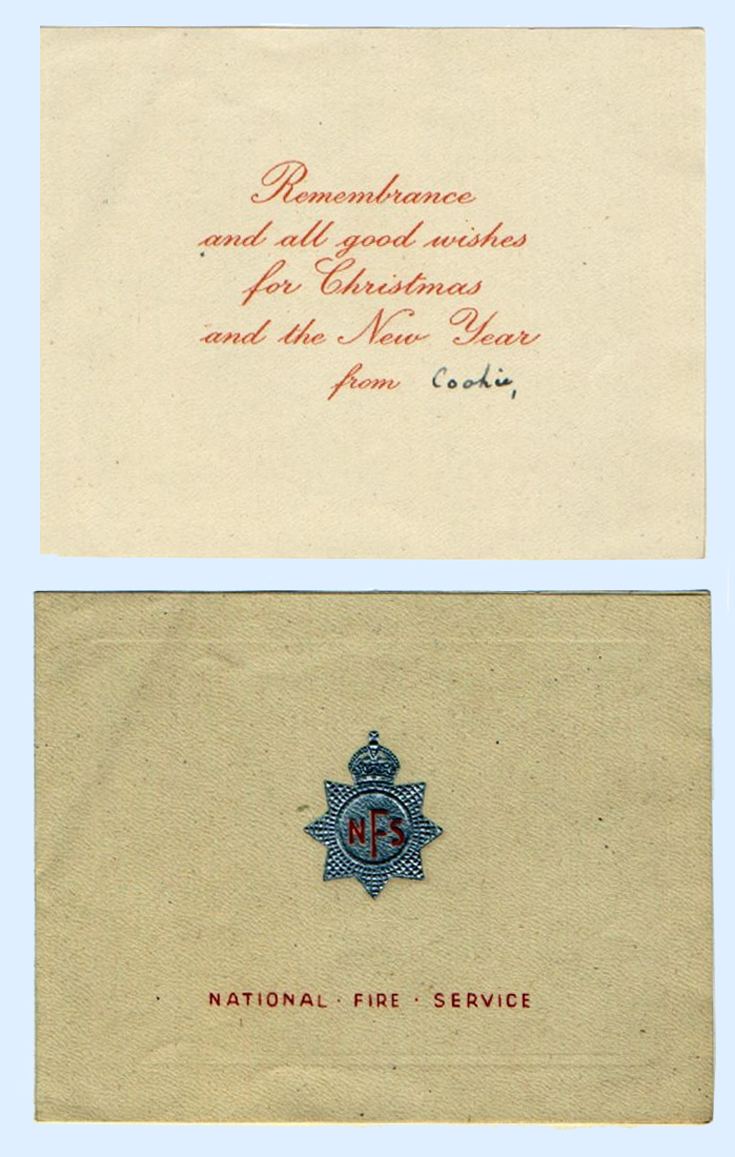 Remembrance
and all good wishes
for Christmas
and the New Year
from Cookie,
NFS
NATIONAL · FIRE · SERVICE